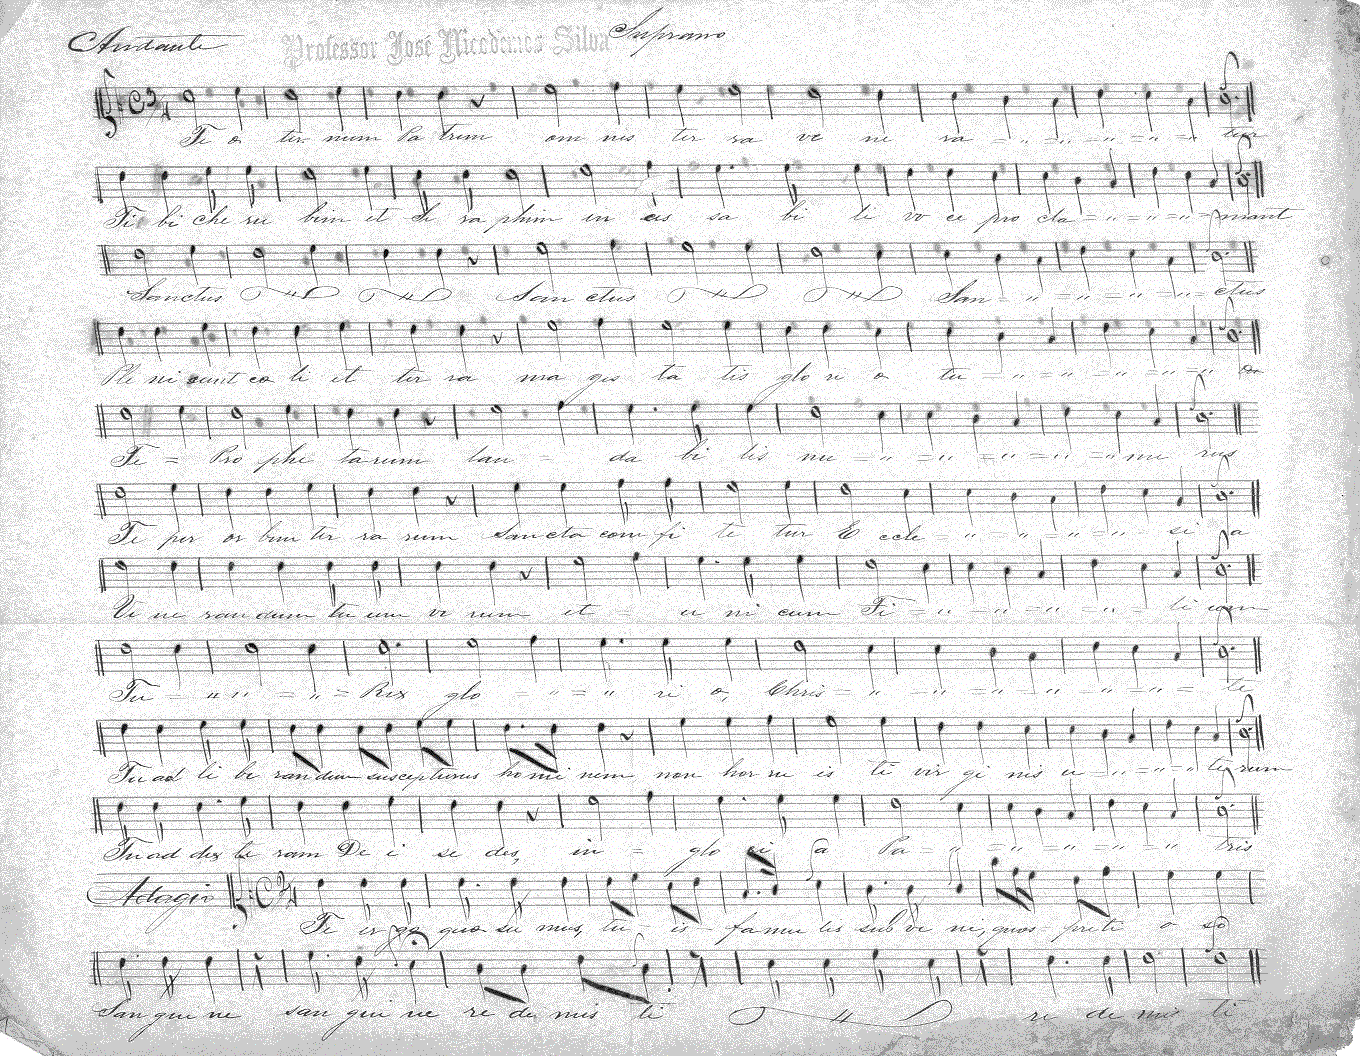 Andante Professor José Nicodemos Silva Soprano
Te e ter num Pa trem om nis ter ra ve ne ra = " = " = " = tur
Ti bi che ru bim et Se ra phim in ces sa bi li vo ce pro cla = " = " = " = mant
Sanctus San ctus San = " = " = " = " = ctus
Ple ni sunt cœ li et ter ra ma ges ta tis glo ri a tu = " = " = " = "
Te = Pro phe tarum lau = da bi lis nu = " = " = " = " = me rus
Te per or bem ter ra rum Sancta com fi te tur E ccle = " = " = " = " = si a
Ve ne randum tu um ve rum et = u ni cum Fi = " = " = " = li um
Tu = " " = " = Rex glo = " = " ri a, Chris = " = " = " = " = te
Tu ad li be randum suscepturus homi nem non hor ru is ti vir gi nis u = " = " = te rum
Tu ad dex te ram De i se des, in = glo ri a Pa = " = " = " = " tris
Adagio
Te er go quæ su mus, tu is famu lis sub ve ni, quos preti o so
San gui ne san gui ne re de mis ti re de mis ti